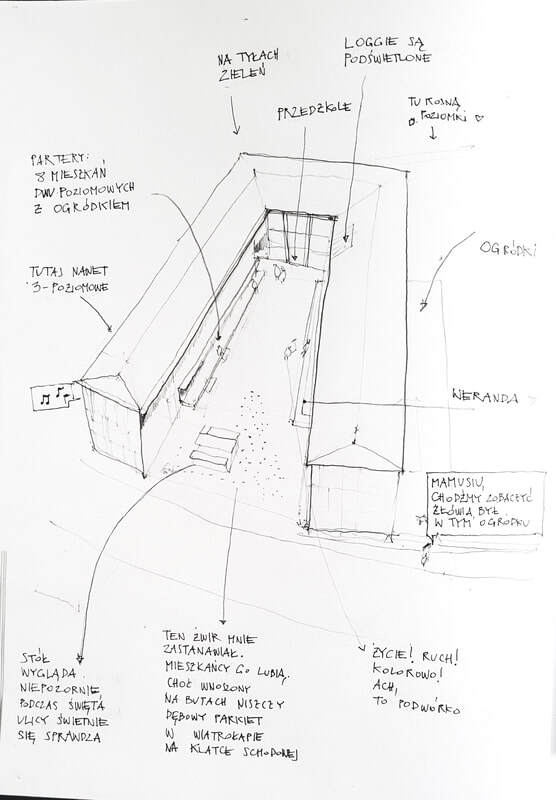 NA TYŁACH
ZIELEŃ
LOGGIE SĄ
PODŚWIETLONE
PRZEDZKOLE
TU ROSNĄ
POZIOMKI ♡
PARTERY:
8 MIESZKAŃ
DWUPOZIOMOWYCH
Z OGRÓDKIEM
OGRÓDKI
TUTAJ NAWET
3-POZIOMOWE
WERANDA
MAMUSIU,
CHODŹMY ZOBACZYĆ
ŻÓŁWIA, BYŁ
W TYM OGRÓDKU
STÓŁ
WYGLĄDA
NIEPOZORNIE,
PODCZAS ŚWIĘTA
ULICY ŚWIETNIE
SIĘ SPRAWDZA
TEN ŻWIR MNIE
ZASTANAWIAŁ.
MIESZKAŃCY GO LUBIĄ.
CHOĆ WNOSZONY
NA BUTACH NISZCZY
DĘBOWY PARKIET
W WIATROŁAPIE
NA KLATCE SCHODOWEJ
ŻYCIE! RUCH!
KOLOROWO!
ACH,
TO PODWÓRKO